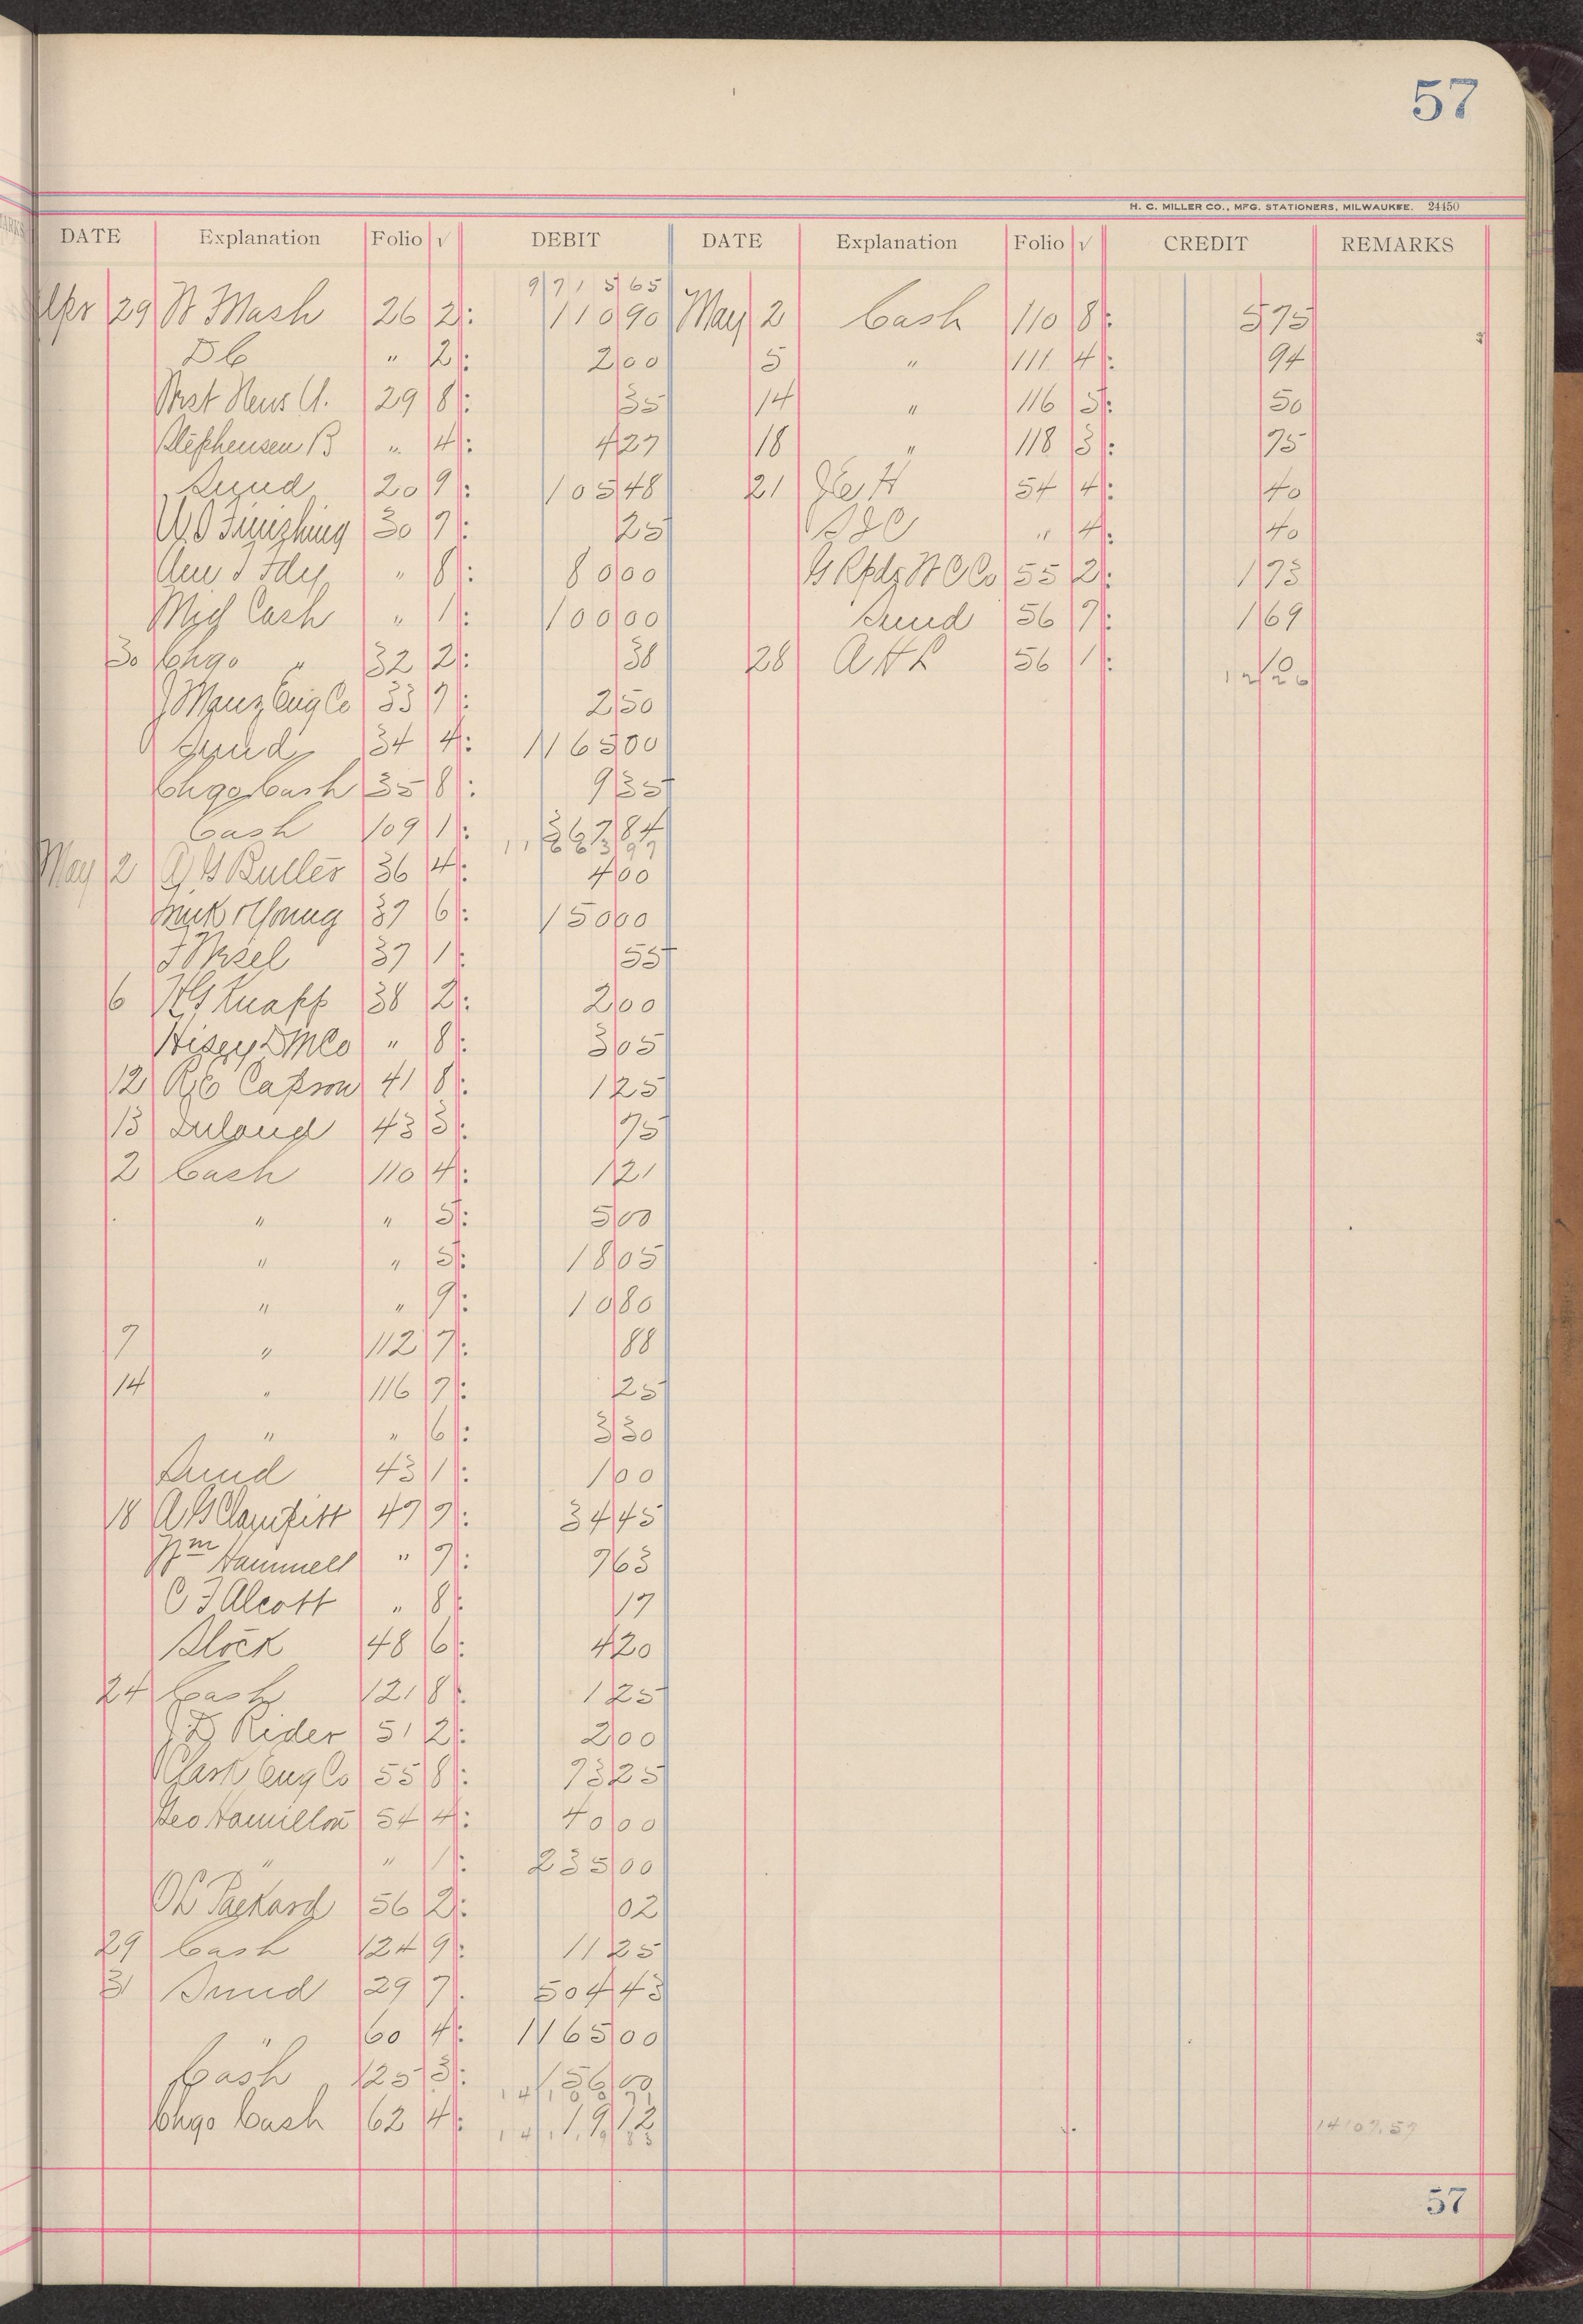 57
H. C. MILLER CO., MFG. STATIONERS, MILWAUKEE. 24450
DATE Explanation Folio √ DEBIT DATE Explanation Folio √ CREDIT REMARKS
9715 65
Apr 29 W Mash 26 2: 110 90 May 2 Cash 110 8: 5 75
" 2: 2 00 5 " 111 4: 94
29 8: 35 14 " 116 5: 50
Stephensen B " 4: 4 27 18 " 118 3: 75
Sund 20 9: 105 48 21 54 4: 40
U.S Finishing 30 7: 25 " 4: 40
" 8: 80 00 G Rpds W C Co 55 2: 1 73
Cash " 1: 100 00 Sund 56 7: 1 69
30 Chgo " 32 2: 38 28 A H L 56 1: 10
12 26
J Manz Eng Co 33 7: 2 50
Sund 34 4: 1165 00
Chgo Cash 35 8: 9 35
Cash 109 1: 367 84
11 663 97
May 2 A G Butler 36 4: 4 00
& Young 37 6: 150 00
37 1: 55
6 H G Knapp 38 2: 2 00
Hisey D M Co " 8: 3 05
12 R E Capson 41 8: 1 25
13 Inland 43 3: 75
2 Cash 110 4: 1 21
" " 5: 5 00
" " 5: 18 05
" " 9: 10 80
7 " 112 7: 88
14 " 116 7: 25
" " 6: 3 30
Sund 43 1: 1 00
18 A G 47 7: 34 45
Wm Hammell " 7: 7 63
C F Alcott " 8: 17
Stock 48 6: 4 20
24 Cash 121 8: 1 25
J D Rider 51 2: 2 00
Clark Eng Co 55 8: 73 25
Geo Hamilton 54 4: 40 00
" " 1: 235 00
O L Packard 56 2: 02
29 Cash 124 9: 11 25
31 Sund 29 7. 504 43
" 60 4: 1165 00
Cash 125 3: 156 00
Chgo Cash 62 4: 19 12
14107.57
57